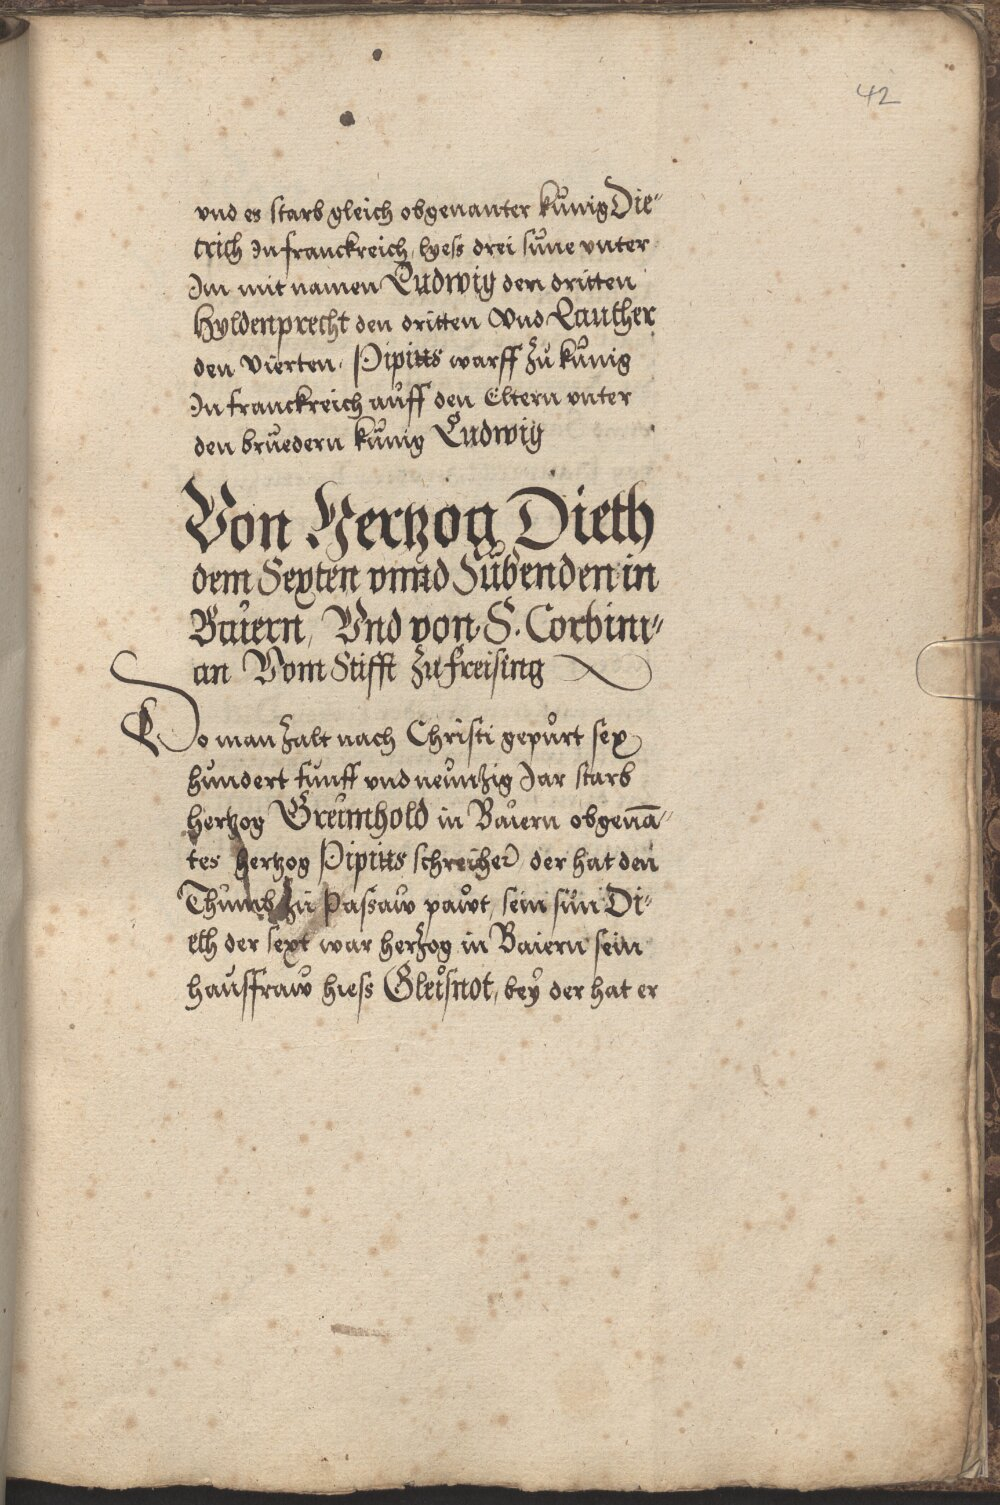 42
vnd es starb gleich obgenanter künig Die-
trich In franckreich, lyess drei süne vnter
Im mit namen Ludwig den dritten
Hyldenprecht den dritten Vnd Lauther
den Vierten. Pipius warff zu künig
In franckreich auff den Eltern vnter
den bruedern künig Ludwig
Von Hertzog Dieth
dem Sexten vnnd Sübenden in
Bauern, Vnd von S. Corbini-
an Vom Stifft zu freising
Do man zalt nach Christi gepürt sex
hundert funff vnd neuntzig Jar starb
hertzog Greimhold in Bauern obgenā-
tes hertzog Pipius schweher, der hat den
Thumb zu Passaw pawt, sein sun Di-
eth der sext war hertzog in Baiern sein
haussfraw hiess Gleisnot, bey der hat er